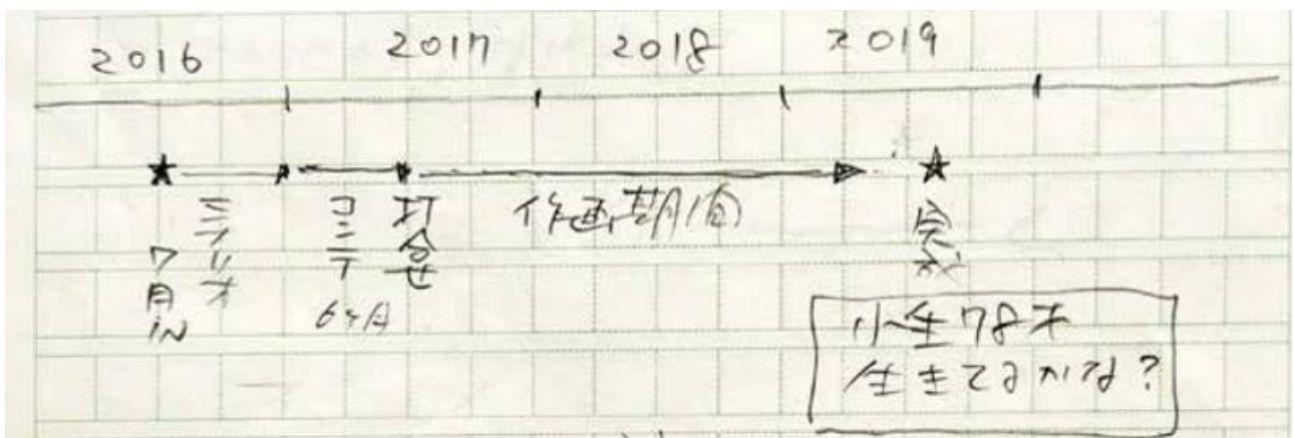 2016 2017 2018 2019
7月IN
シナリオ
コンテ
6ヶ月
打合せ
作画期間
完成
小生78才
生きてるかな?